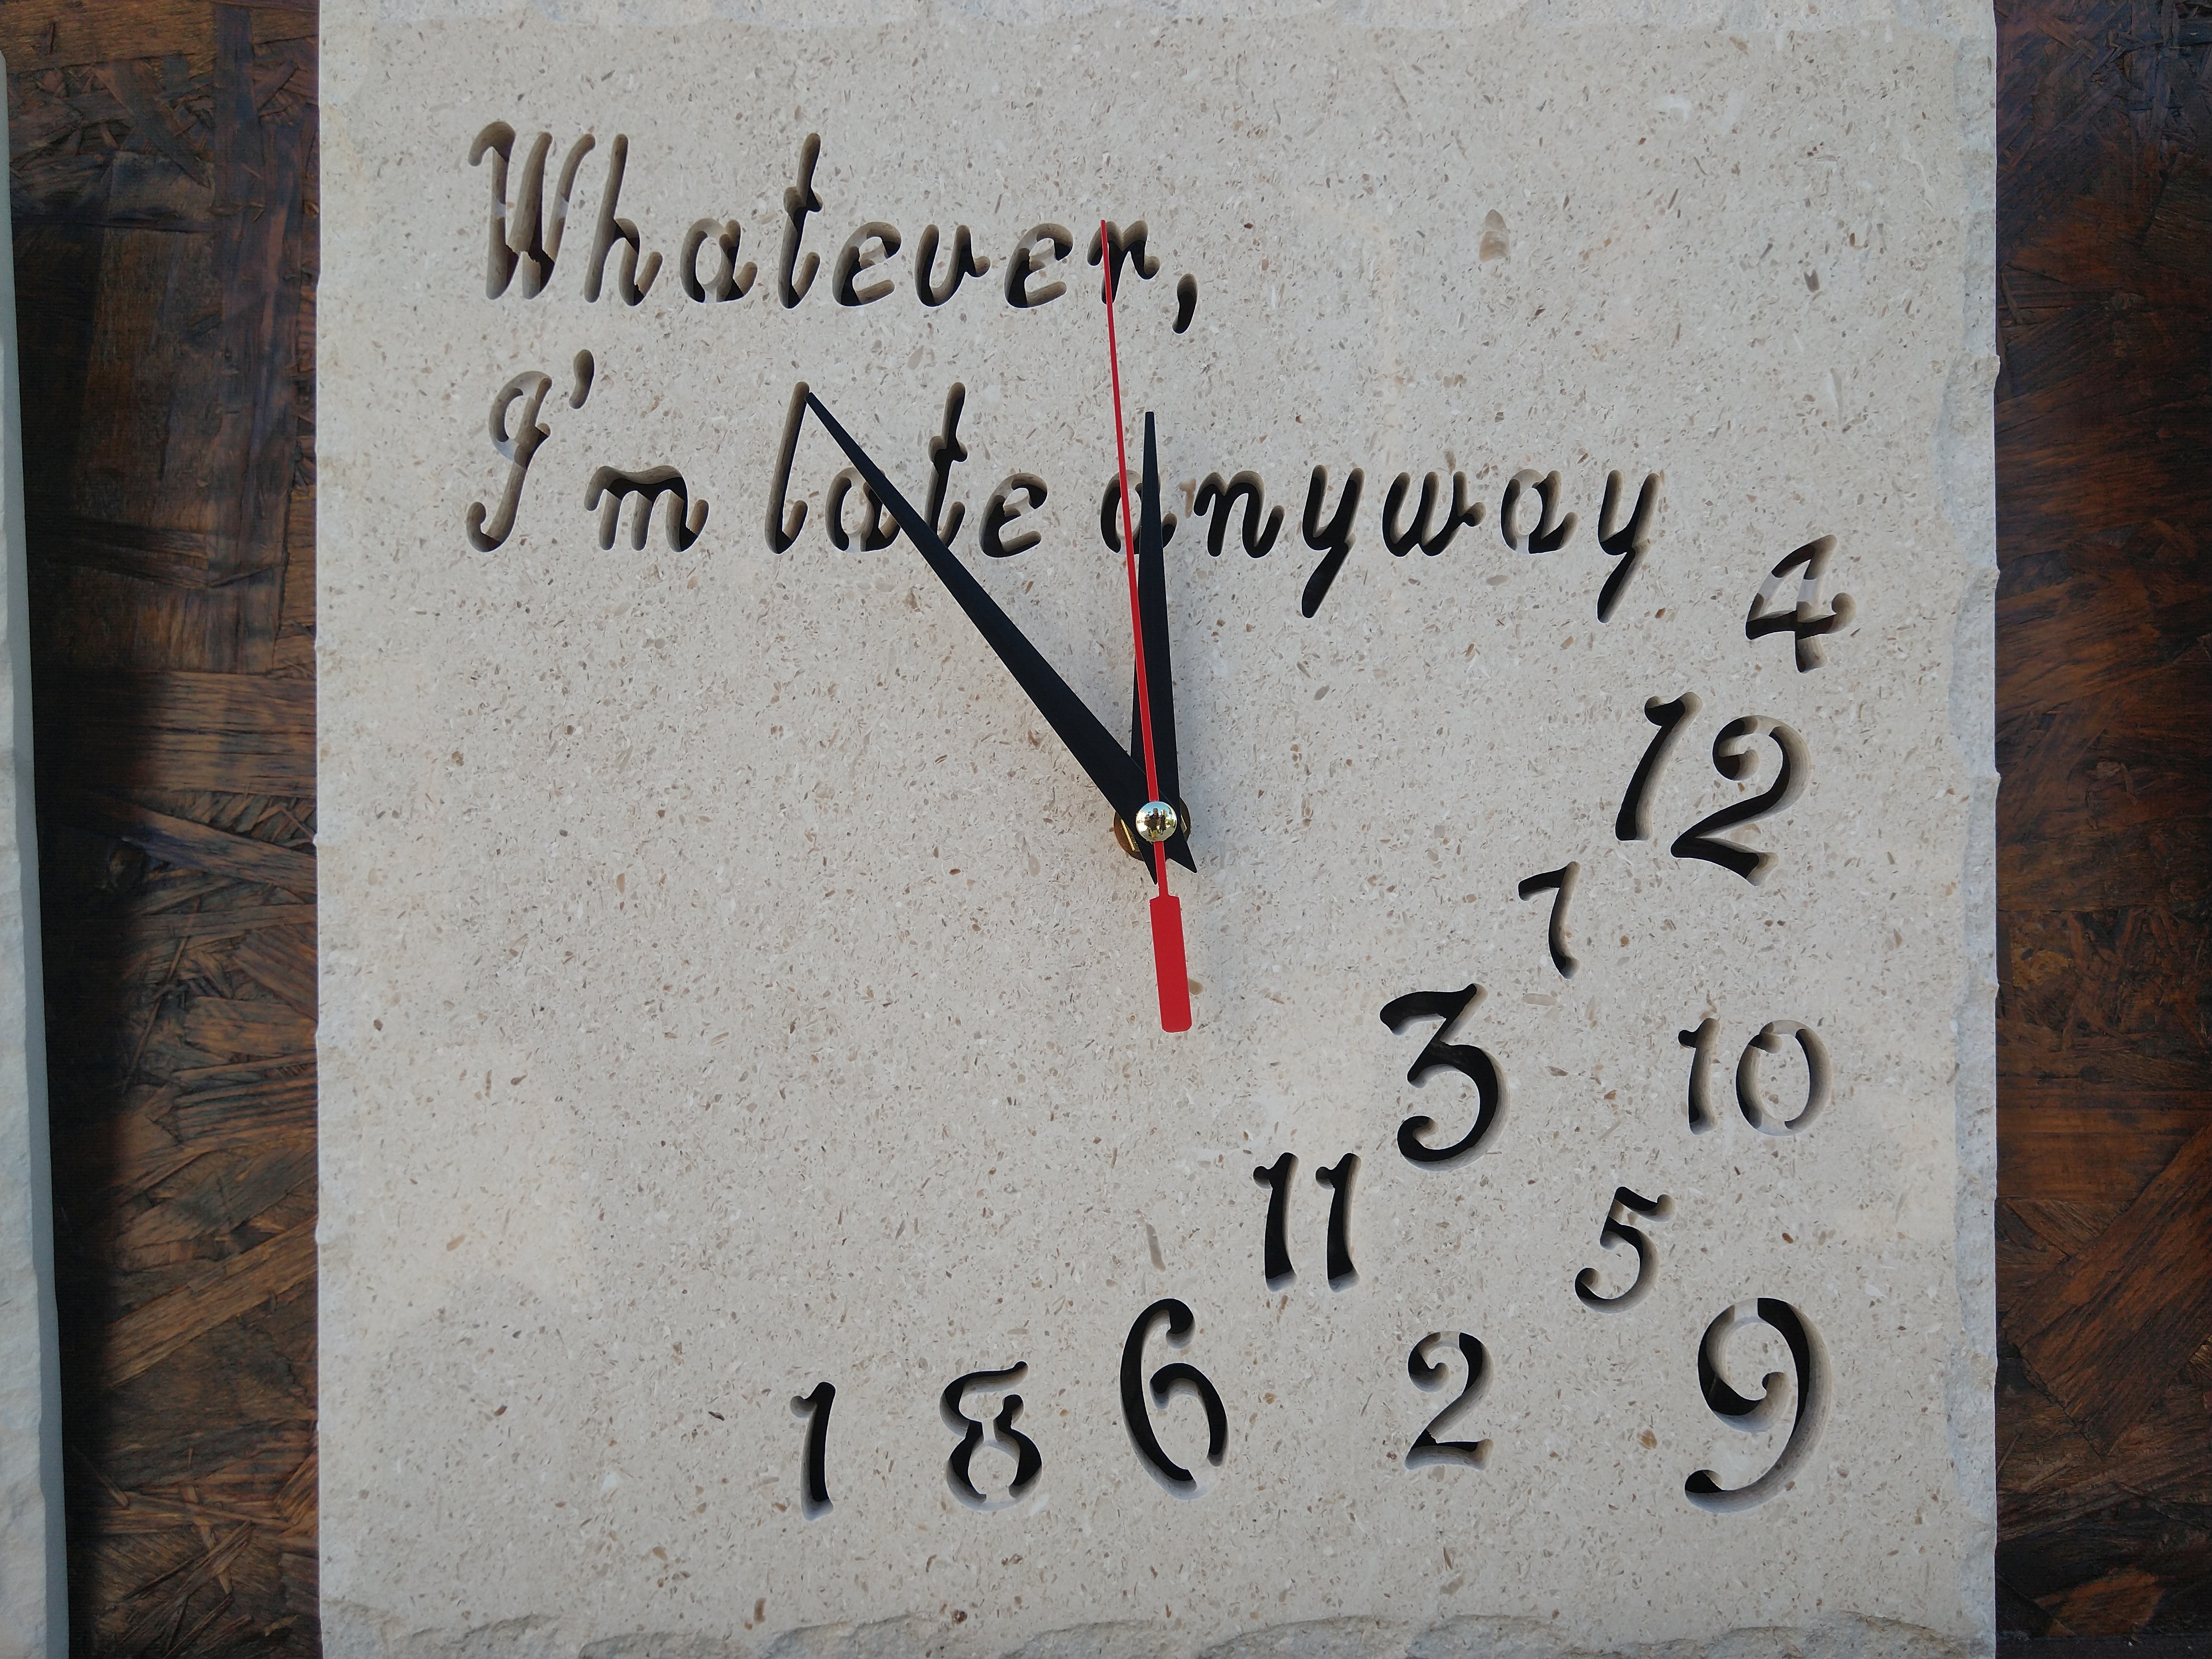 Whatever,
I'm late anyway
4
12
7
3
10
11
5
1 8 6 2 9